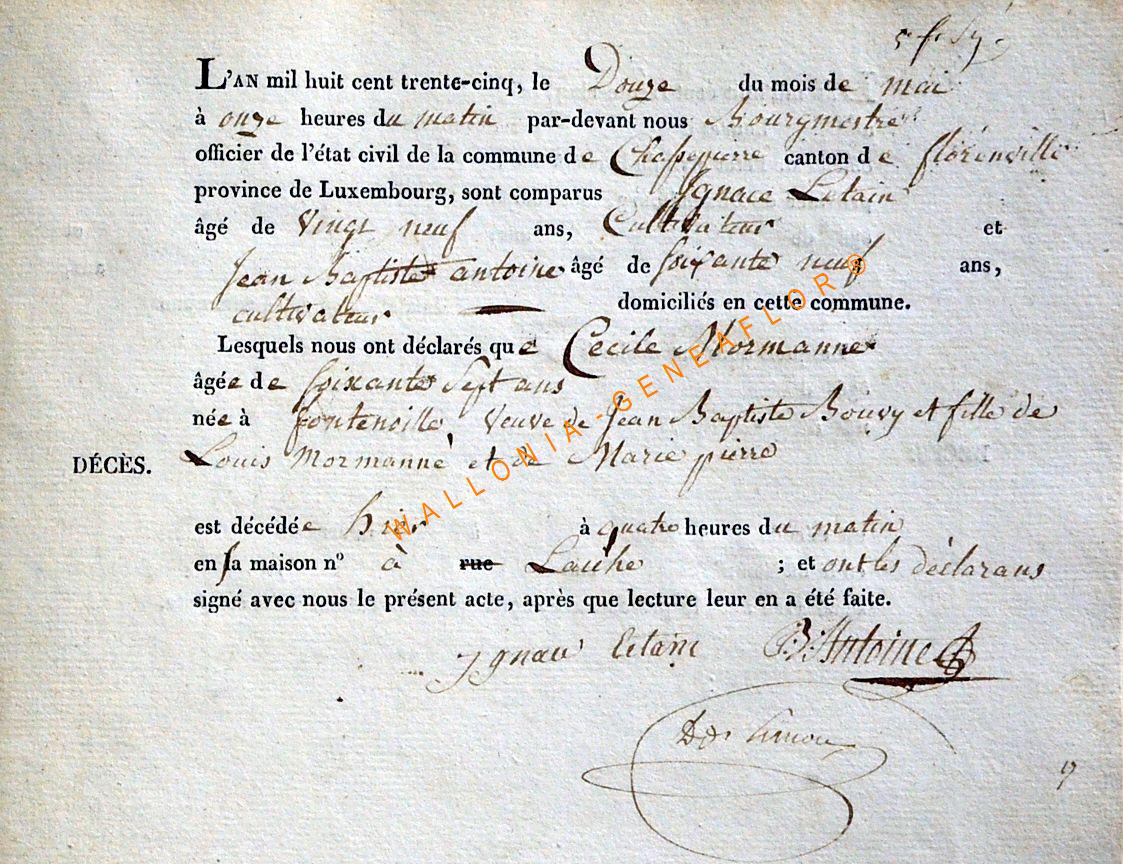 L'AN mil huit cent trente-cinq, le Douze du mois de mai
à onze heures du matin par-devant nous Bourgmestre
officier de l'état civil de la commune de Chassepierre canton de florenville
province de Luxembourg, sont comparus Ignace Letain
âgé de vingt neuf ans, Cultivateur et
Jean Baptiste antoine âgé de soixante neuf ans,
cultivateur domiciliés en cette commune.
Lesquels nous ont déclarés que Cecile Mormanne
âgée de soixante sept ans
née à fontenoille, veuve de Jean Baptiste Bouvy et fille de
DÉCÈS. Louis Mormanne et de Marie pierre
est décédée hier à quatre heures du matin
en sa maison nº à rue Laiche ; et ont les déclarans
signé avec nous le présent acte, après que lecture leur en a été faite.
ygnace letain B: Antoine
WALLONIA-GENEAFLOR©
9